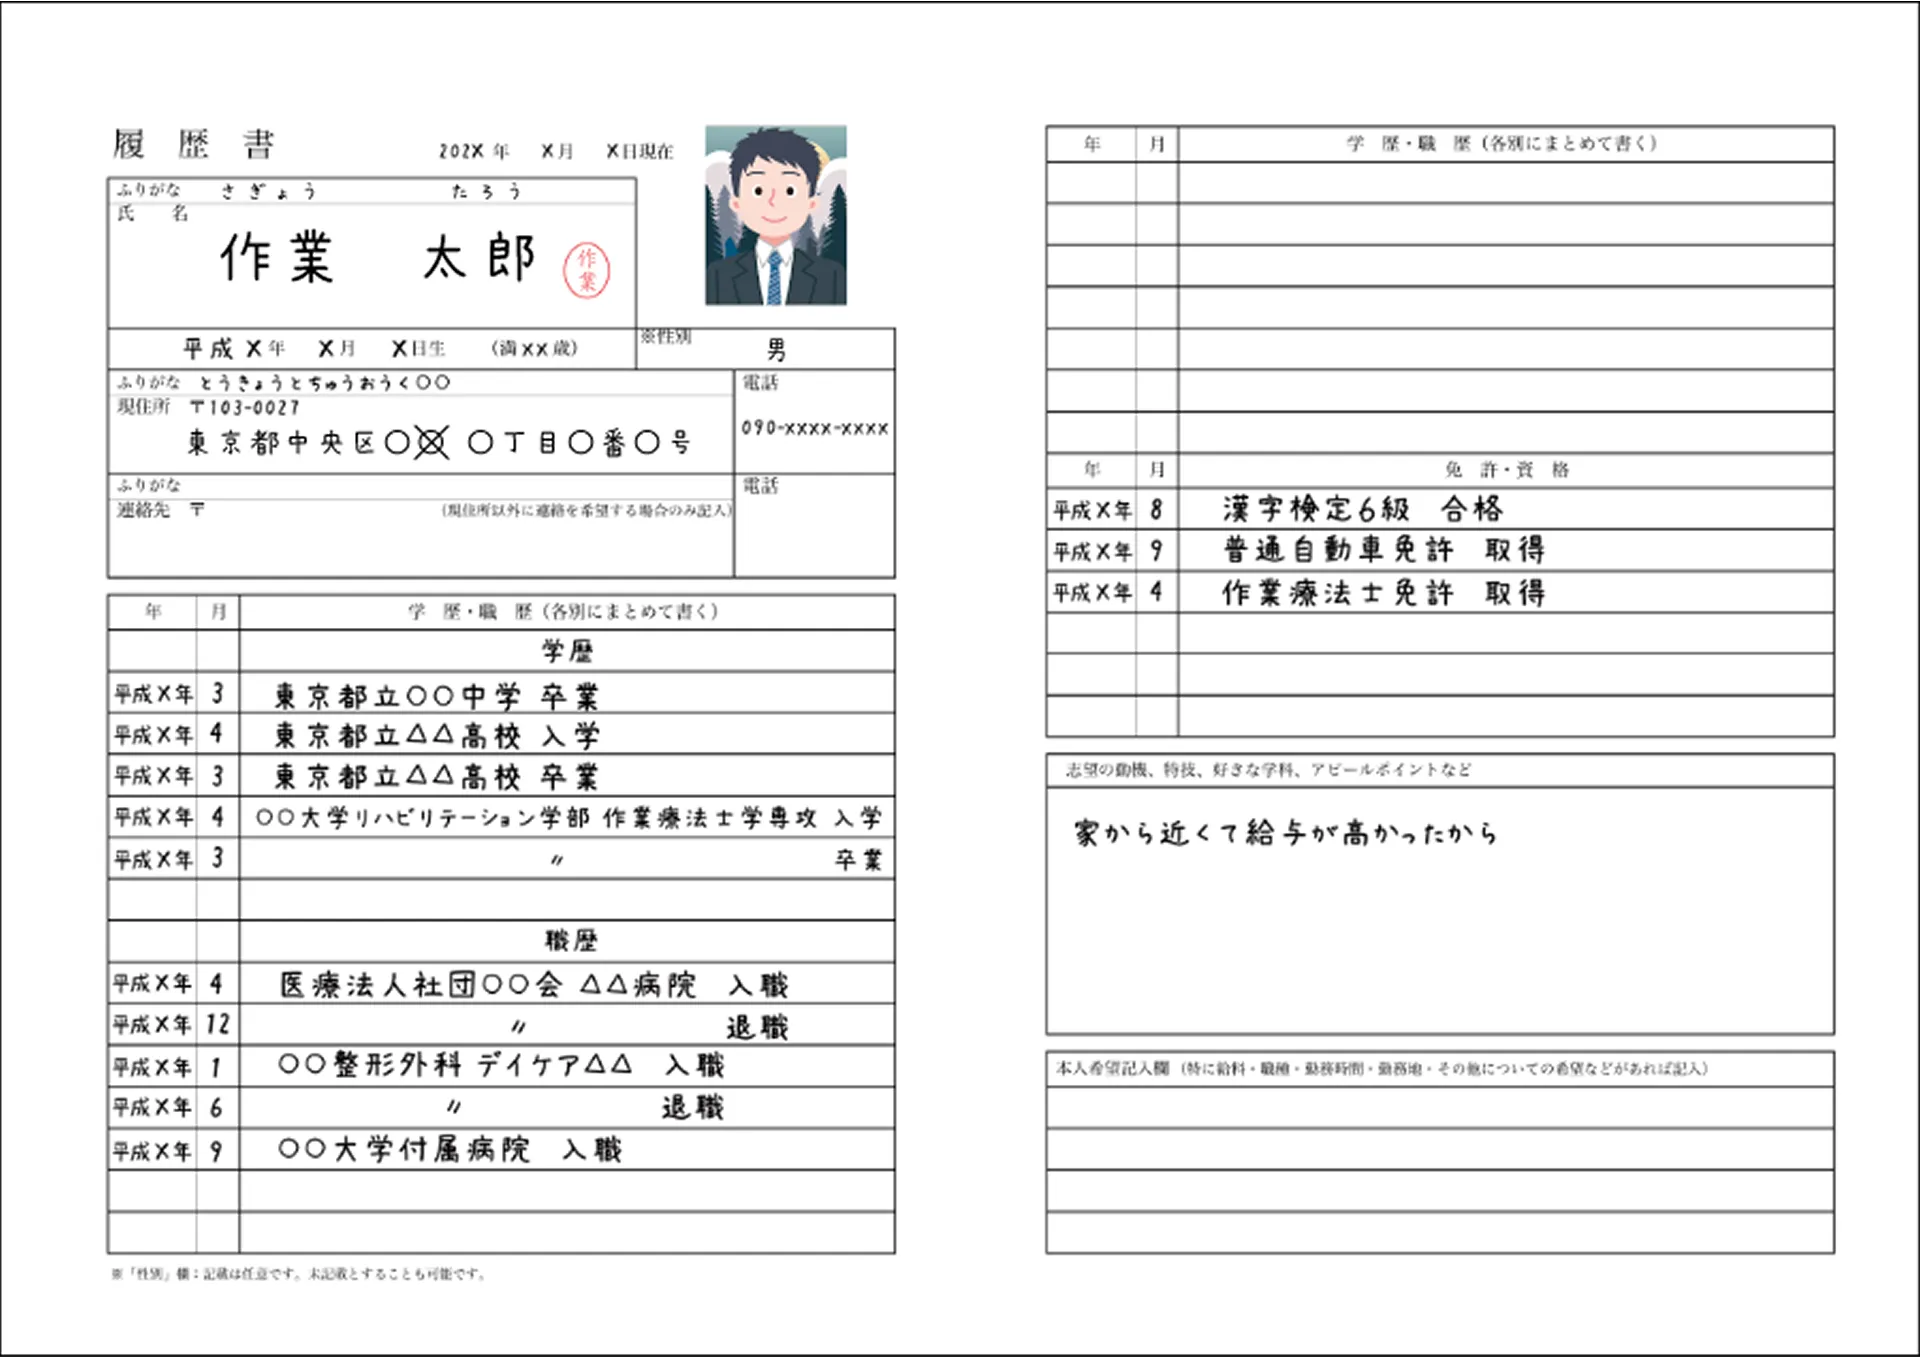 履歴書
202X年 X月 X日現在
ふりがな さぎょう たろう
氏名
作業 太郎
作業
平成X年 X月 X日生 (満XX歳)
※性別
男
ふりがな とうきょうとちゅうおうく〇〇
現住所 〒103-0027
東京都中央区〇〇 〇丁目〇番〇号
電話
090-xxxx-xxxx
ふりがな
連絡先 〒 (現住所以外に連絡を希望する場合のみ記入)
電話
年 月 学 歴・職 歴(各別にまとめて書く)
学歴
平成X年 3 東京都立〇〇中学 卒業
平成X年 4 東京都立△△高校 入学
平成X年 3 東京都立△△高校 卒業
平成X年 4 〇〇大学リハビリテーション学部 作業療法士学専攻 入学
平成X年 3 〃 卒業
職歴
平成X年 4 医療法人社団〇〇会 △△病院 入職
平成X年 12 〃 退職
平成X年 1 〇〇整形外科 デイケア△△ 入職
平成X年 6 〃 退職
平成X年 9 〇〇大学付属病院 入職
※「性別」欄:記載は任意です。未記載とすることも可能です。
年 月 学 歴・職 歴(各別にまとめて書く)
年 月 免 許・資 格
平成X年 8 漢字検定6級 合格
平成X年 9 普通自動車免許 取得
平成X年 4 作業療法士免許 取得
志望の動機、特技、好きな学科、アピールポイントなど
家から近くて給与が高かったから
本人希望記入欄(特に給料・職種・勤務時間・勤務地・その他についての希望などがあれば記入)